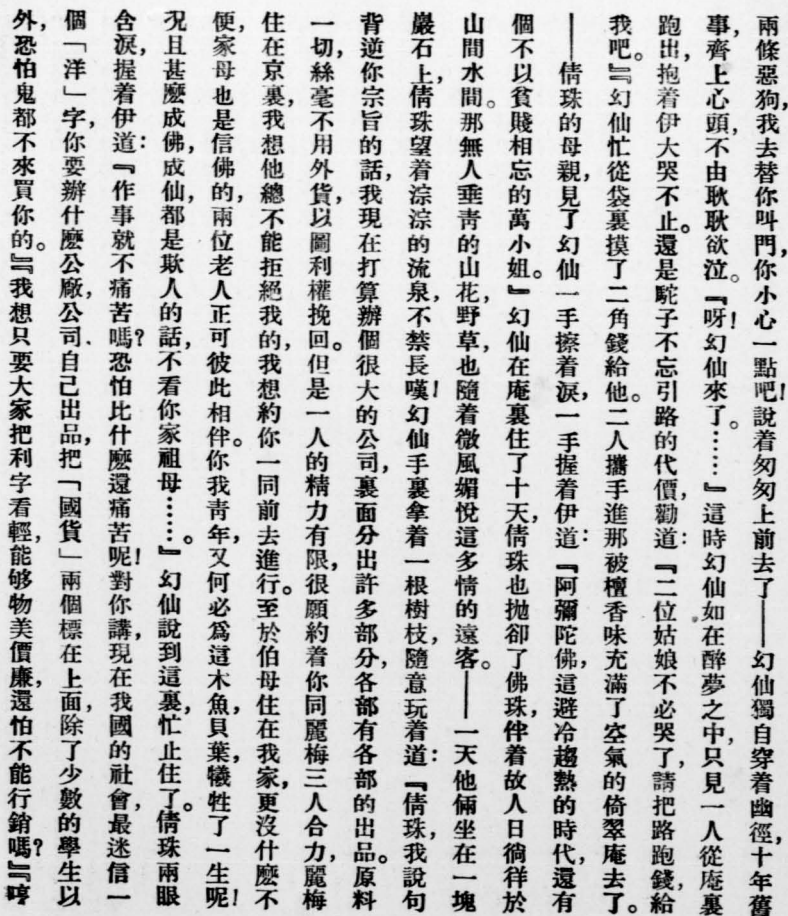 兩條惡狗,我去替你叫門,你小心一點吧!說着匆匆上前去了——幻仙獨自穿着幽徑,十年舊
事,齊上心頭,不由耿耿欲泣。『呀!幻仙來了。……』這時幻仙如在醉夢之中,只見一人從庵裏
跑出,抱着伊大哭不止。還是駝子不忘引路的代價,勸道:『二位姑娘不必哭了,請把路跑錢給
我吧。』『幻仙忙從袋裏摸了二角錢給他。二人攜手進那被檀香味充滿了空氣的倚翠庵去了。
——倩珠的母親,見了幻仙一手擦着淚,一手握着伊道:『阿彌陀佛,這避冷趨熱的時代,還有
個不以貧賤相忘的萬小姐。』幻仙在庵裏住了十天,倩珠也拋卻了佛珠,伴着故人日徜徉於
山間水間。那無人垂靑的山花,野草,也隨着微風媚悅這多情的遠客。——一天他倆坐在一塊
巖石上,倩珠望着淙淙的流泉,不禁長嘆!幻仙手裏拿着一根樹枝,隨意玩着道:『倩珠,我說句
背逆你宗旨的話,我現在打算辦個很大的公司,裏面分出許多部分,各部有各部的出品。原料
一切,絲毫不用外貨,以圖利權挽回。但是一人的精力有限,很願約着你同麗梅三人合力,麗梅
住在京裏,我想他總不能拒絕我的,我想約你一同前去進行。至於伯母住在我家,更沒什麽不
便,家母也是信佛的,兩位老人正可彼此相伴。你我靑年,又何必爲這木魚,貝葉,犧牲了一生呢!
况且甚麽成佛,成仙,都是欺人的話,不看你家祖母……。』幻仙說到這裏,忙止住了。倩珠兩眼
含淚,握着伊道:『作事就不痛苦嗎?恐怕比什麽還痛苦呢!對你講,現在我國的社會,最迷信一
個「洋」字,你要辦什麽公廠,公司、自己出品,把「國貨」兩個標在上面,除了少數的學生以
外,恐怕鬼都不來買你的。』『我想只要大家把利字看輕,能够物美價廉,還怕不能行銷嗎?』『哼